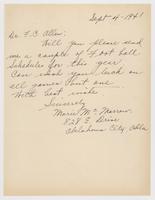 Sept-4-1941
Dr. F.C. Allen:
Will you please send
me a couple of Foot ball
Schedules for this year
Can wish you luck on
all games but one.
With best wishes
Sincerely
Marie Mc
828 E. Drive
Oklahoma City, Okla